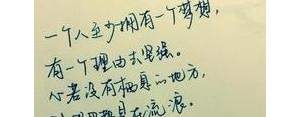 一个人至少拥有一个梦想，
有一个理由去坚强。
心若没有栖息的地方，
在流浪。